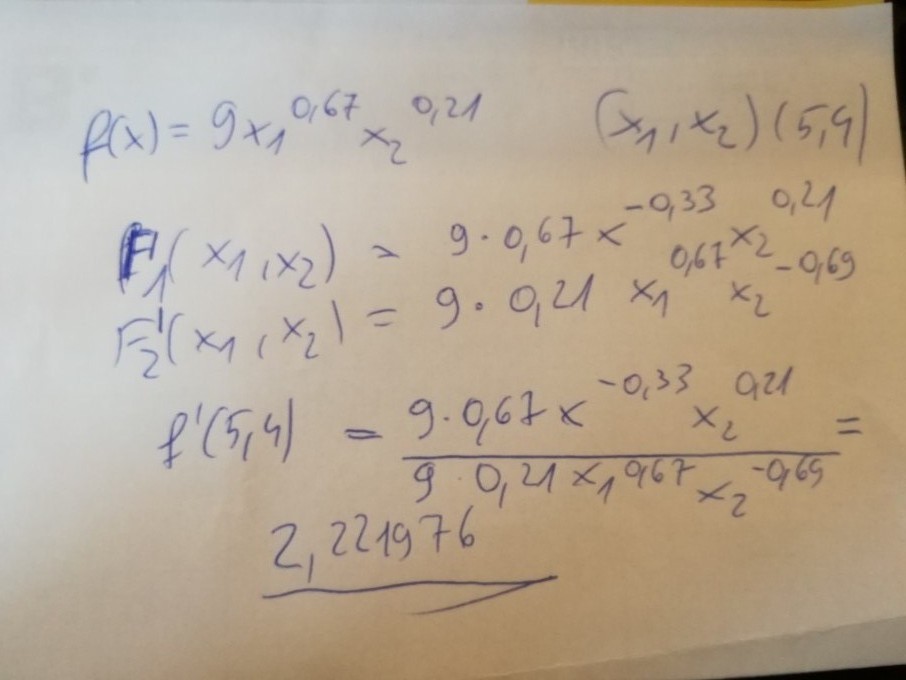 f(x) = 9x₁^0,67 x₂^0,21 (x₁, x₂) (5,4)
F'₁(x₁, x₂) = 9·0,67 x^-0,33 x₂^0,21
F'₂(x₁, x₂) = 9·0,21 x₁^0,67 x₂^-0,69
f'(5,4) = 9·0,67 x^-0,33 x₂^0,21 / 9·0,21 x₁^0,67 x₂^-0,69 =
2,221976